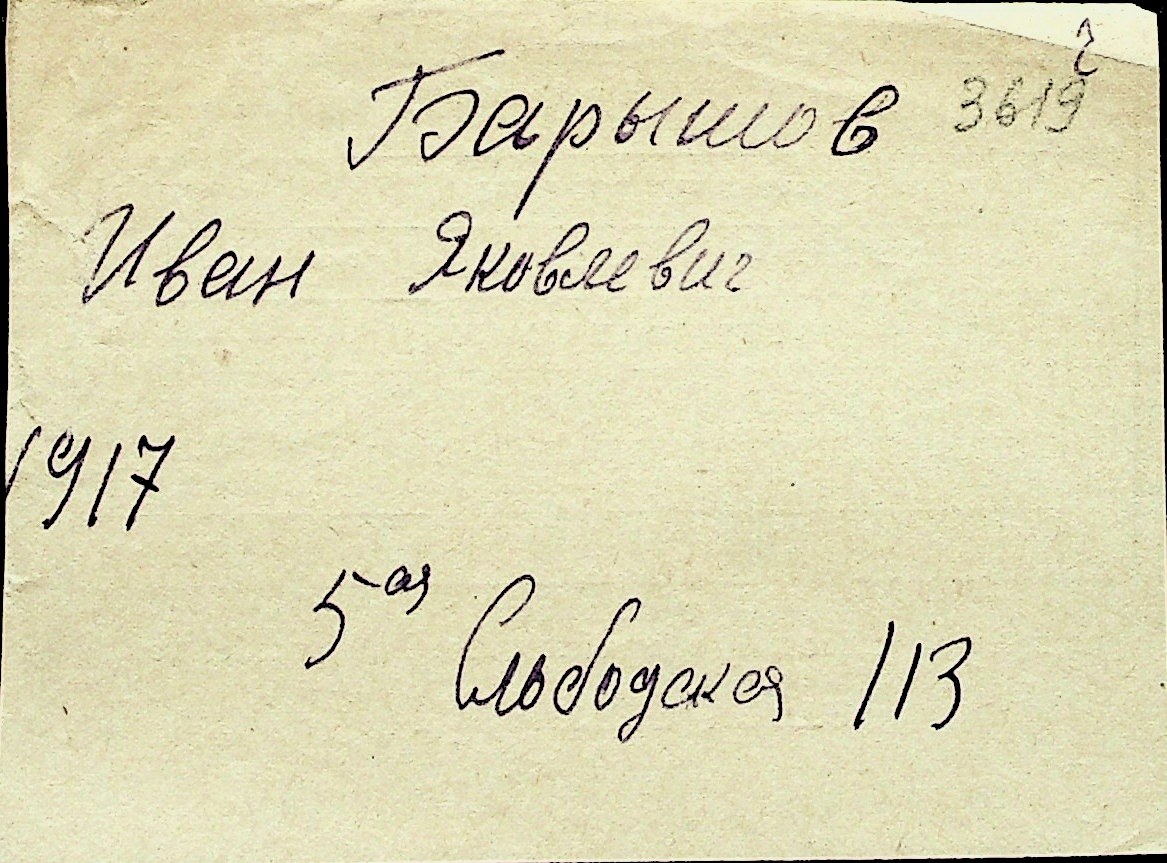 Барышов 3619
Иван Яковлевич
1917
5ая Слободская 113